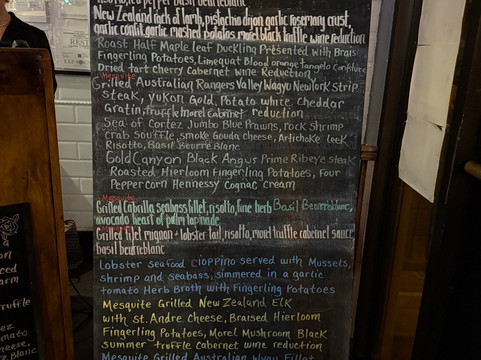 risotto, red pepper basil beurreblanc
New Zealand rack of lamb, pistachio dijon garlic rosemary crust,
garlic confit garlic mashed potatoes morel black truffle wine reduction
Roast Half Maple leaf Duckling Presented with Brais
Fingerling Potatoes, Limequat Blood orange tangelo Confiture
Dried tart Cherry Cabernet wine Reduction
Mesquite
Grilled Australian Rangers Valley Wagyu New York Strip
steak, yukon Gold Potato white Cheddar
Gratin, truffle morel Cabernet reduction
Sea of Cortez Jumbo Blue Prawns, rock Shrimp
crab souffle, smoke Gouda cheese, Artichoke leek
Risotto, Basil Beurre Blanc
Gold Canyon Black Angus Prime Ribeye steak
Roasted Hierloom Fingerling Potatoes, Four
Peppercorn Hennessy Cognac cream
Mesquite
Grilled Cabrilla seabass fillet, risotto, fine herb Basil Beurreblanc,
avocado heart of palm
Grilled filet mignon + lobster tail, risotto, morel truffle cabernet sauce
basil beurreblanc
Lobster seafood cioppino served with Mussels,
shrimp and seabass, simmered in a garlic
tomato Herb Broth with Fingerling Potatoes
Mesquite Grilled New Zealand Elk
with St. Andre Cheese, Braised Hierloom
Fingerling Potatoes, Morel Mushroom Black
summer truffle Cabernet wine reduction
Mesquite Grilled Australian